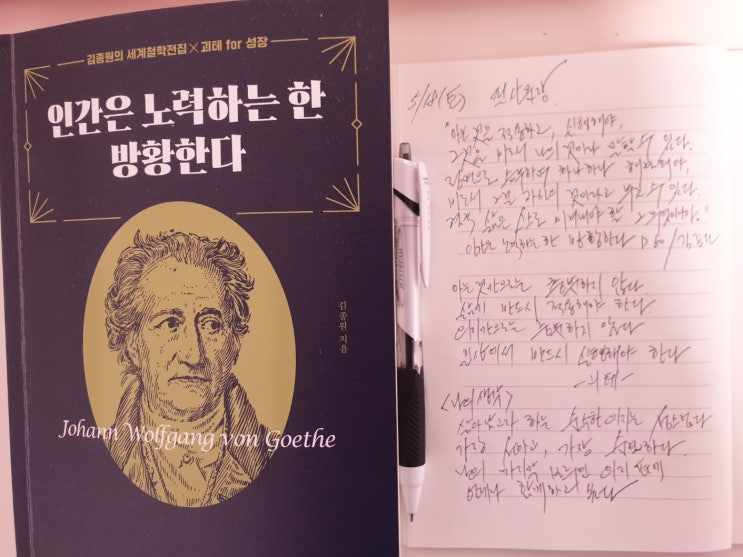 김종원의 세계철학전집 × 괴테 for 성장
인간은 노력하는 한
방황한다
김종원 지음
Johann Wolfgang von Goethe
JETSTREAM
5/18(토) 필사원장
"아는 것을 적용하고, 실천해야,
그것을 비로소 나의 것이라 말할 수 있다.
하나하나 해결해야,
비로소 그걸 가지의 것이라고 부를 수 있다.
결국 삶은 스스로 이겨내야 한
인간은 노력하는 한 방황한다 P 60/김종원
아는 것만으로는 충분하지 않다.
삶에 반드시 적용해야 한다.
의지만으로는 충분하지 않다
일상에서 반드시 실천해야 한다
-괴테-
<나의 생각>
살아보고자 하는 순수한 의지는
가장 강하고, 가장
나의 가장
언제나 함께하고 싶다